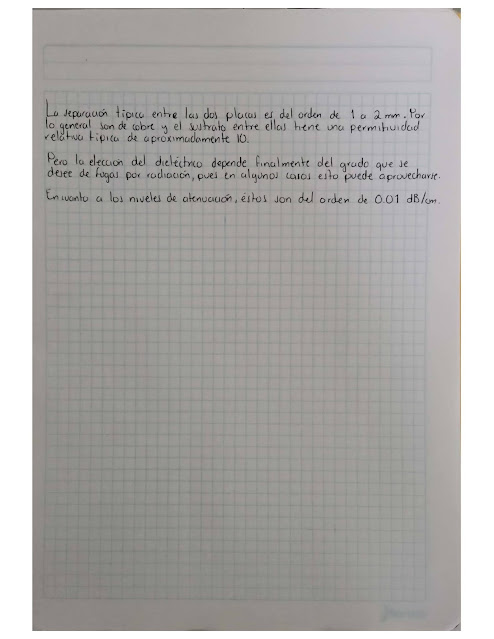 La separación típica entre las dos placas es del orden de 1 a 2 mm. Por
lo general son de cobre y el sustrato entre ellas tiene una permitividad
relativa típica de aproximadamente 10.
Pero la elección del dieléctrico depende finalmente del grado que se
desee de fugas por radiación, pues en algunos casos esto puede aprovecharse.
En cuanto a los niveles de atenuación, éstos son del orden de 0.01 dB/cm.